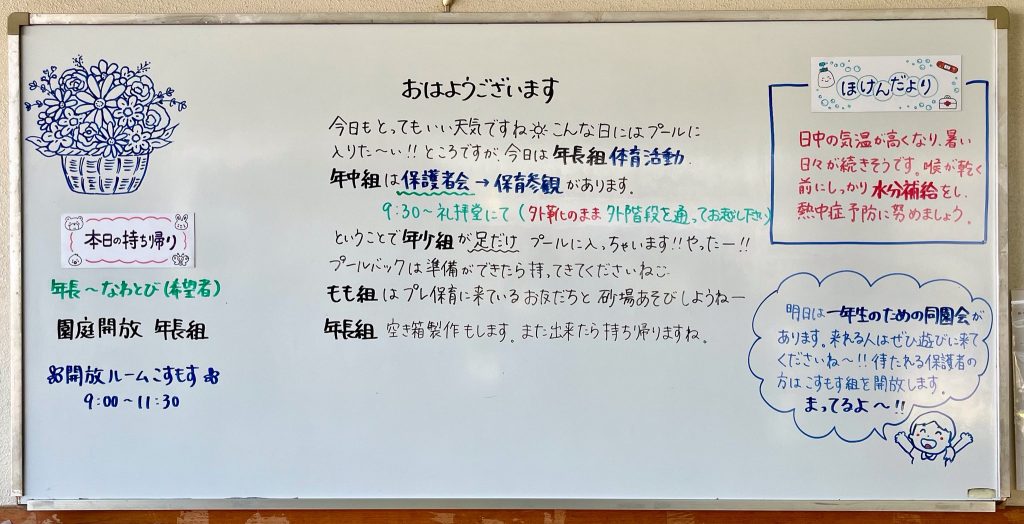 おはようございます
今日もとってもいい天気ですね☼ こんな日にはプールに
入りた～い!! ところですが、今日は 年長組 体育活動、
年中組は 保護者会 → 保育参観 があります。
9:30～礼拝堂にて (外靴のまま 外階段を通ってお越し下さい)
ということで 年少組が 足だけ プールに入っちゃいます!! やったー!!
プールバックは準備ができたら持ってきてくださいね
もも組はプレ保育に来ているお友だちと 砂場あそびしようねー
年長組 空き箱製作もします。また出来たら持ち帰りますね。
本日の持ち帰り
年長～なわとび(希望者)
園庭開放 年長組
開放ルームこすもす
9:00～11:30
ほけんだより
日中の気温が高くなり、暑い
日々が続きそうです。喉が乾く
前にしっかり水分補給をし、
熱中症予防に努めましょう。
明日は一年生のための同園会が
あります。来れる人はぜひ遊びに来て
くださいね～!! 待たれる保護者の
方はこすもす組を開放します。
まってるよ～!!